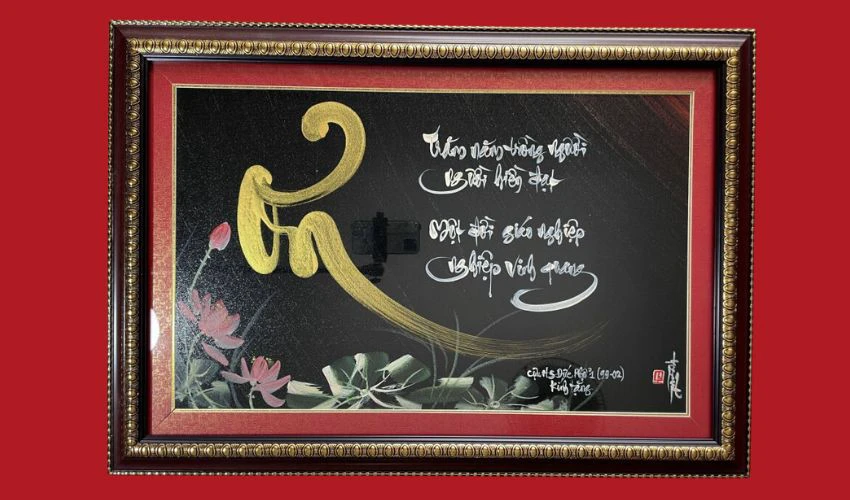 Trăm năm trồng người
người hiền đạt
Một đời giáo nghiệp
nghiệp vinh quang
Cựu HS Đức Phổ 1 (99-02)
Kính tặng